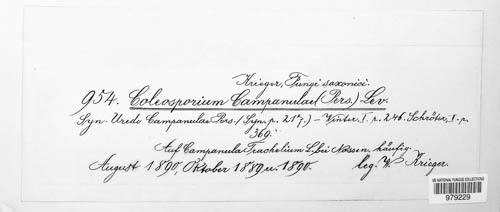 Krieger, Fungi saxonici.
954. Coleosporium Campanulae (Pers.) Lev.
Syn. Uredo Campanulae Pers. (Syn. p. 217.) – Winter. I. p. 246. Schröter, I. p.
369.
Auf Campanula Trachelium L. bei Nossen, häufig.
August 1890, Oktober 1889 u. 1890. leg. W. Krieger.
US NATIONAL FUNGUS COLLECTIONS
979229